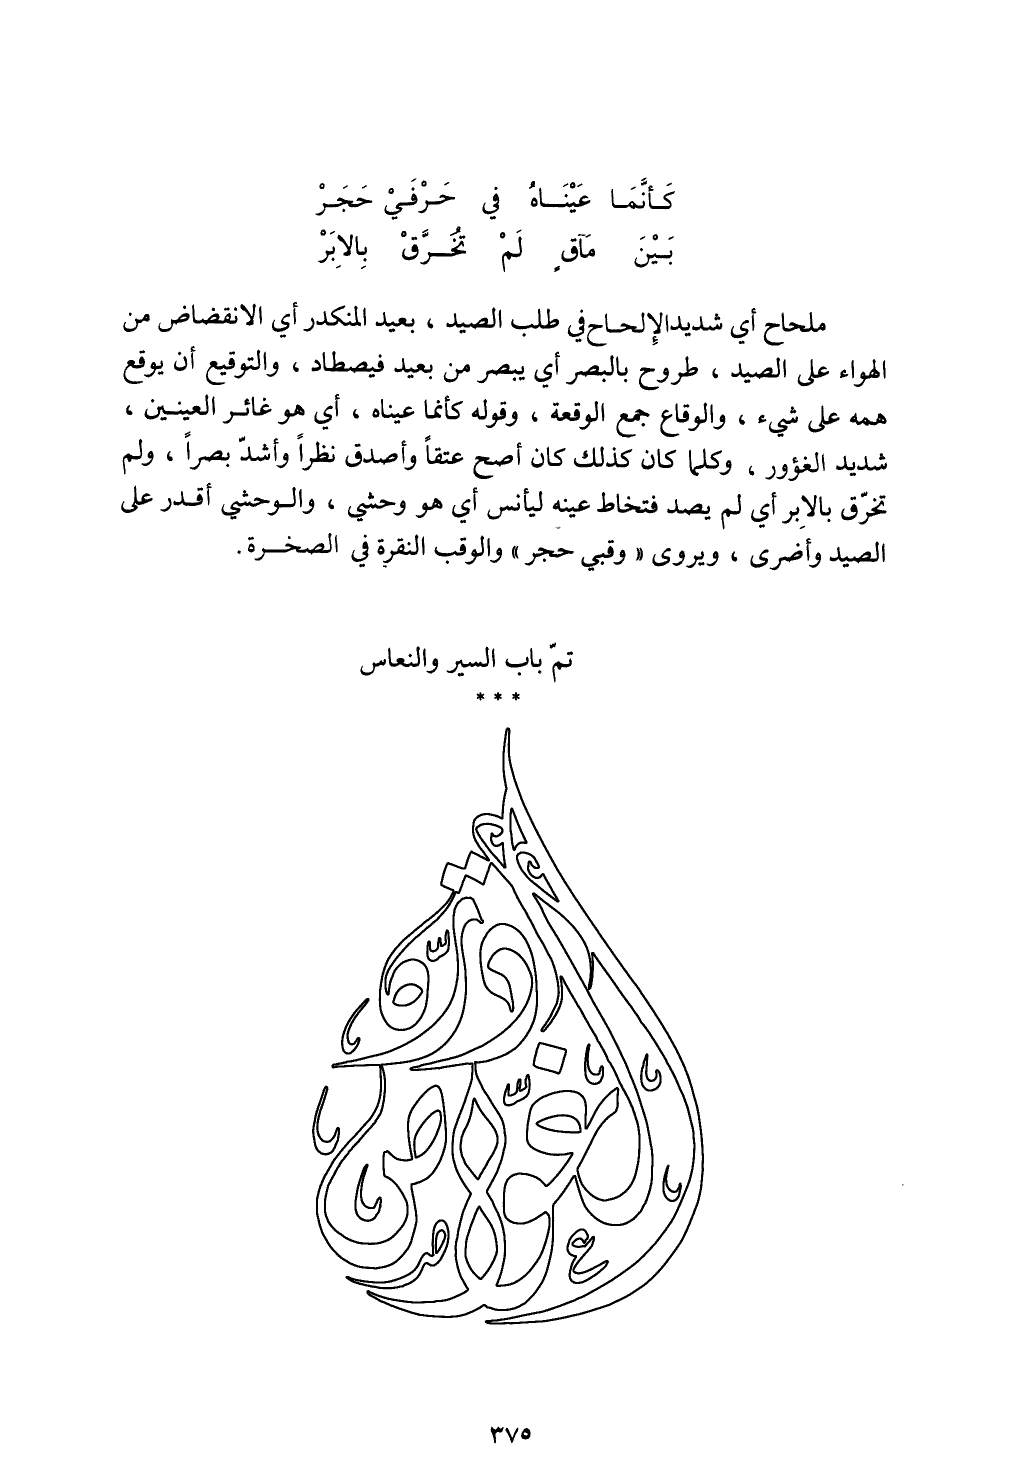 كَـأنَّمَـا عَيْنَـــاهُ في حَـرْفَـيْ حَجَـرْ
بَـيْنَ مَآقٍ لَمْ تُخَـــرَّقْ بِالاِبَرْ
ملحاح أي شديدالإِلحـاح في طلب الصيد ، بعيد المنكدر أي الانقضاض من
الهواء على الصيد ، طروح بالبصر أي يبصر من بعيد فيصطاد ، والتوقيع أن يوقع
همه على شيء ، والوقاع جمع الوقعة ، وقوله كأنما عيناه ، أي هو غائـر العينـين ،
شديد الغؤور ، وكلما كان كذلك كان أصح عتقاً وأصدق نظراً وأشدّ بصراً ، ولم
تخرّق بالابر أي لم يصد فتخاط عينه ليأنس أي هو وحشي ، والـوحشي أقـدر على
الصيد وأضرى ، ويروى « وقبي حجر » والوقب النقرة في الصخـــرة .
تمّ باب السير والنعاس
* * *
درّة
الغوّاص
٣٧٥